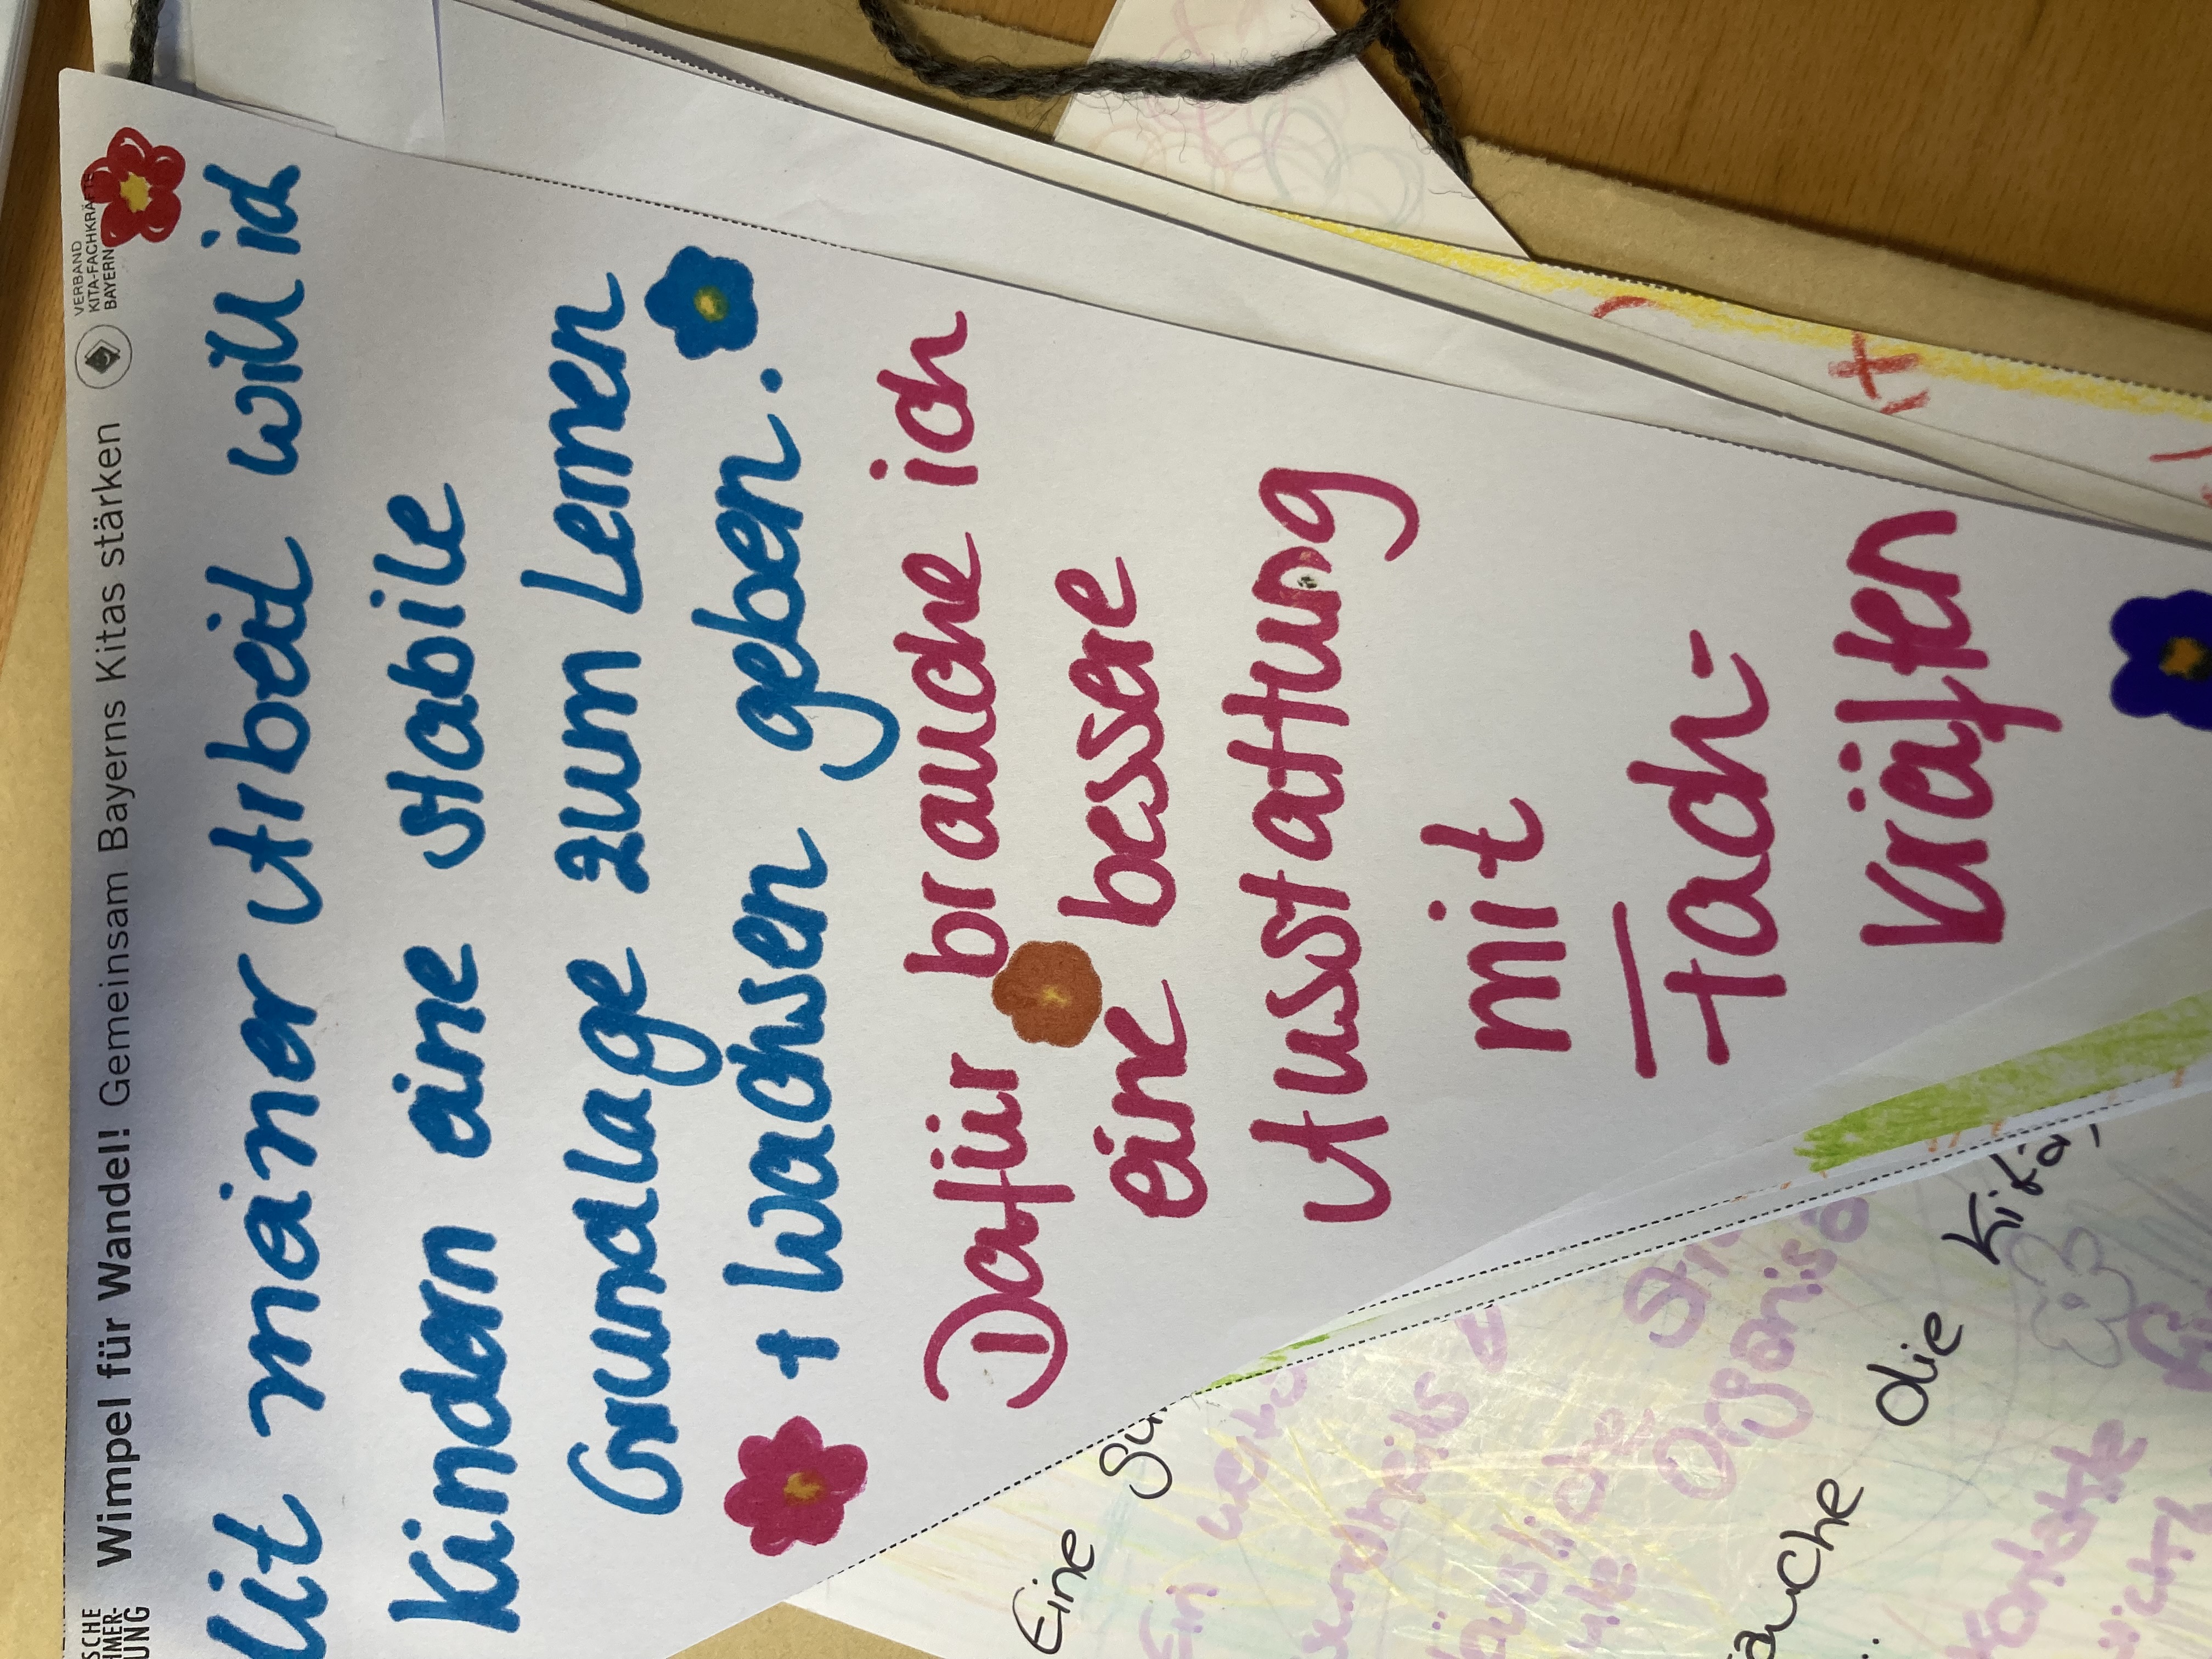 VERBAND
KITA-FACHKRÄFTE
BAYERN
Wimpel für Wandel! Gemeinsam Bayerns Kitas stärken
Mit meiner Arbeit will ich
Kindern eine stabile
Grundlage zum Lernen
+ Wachsen geben.
Dafür brauche ich
eine bessere
Ausstattung
mit
Fach-
kräften
Eine
die Kita
Organisa
Kontakte